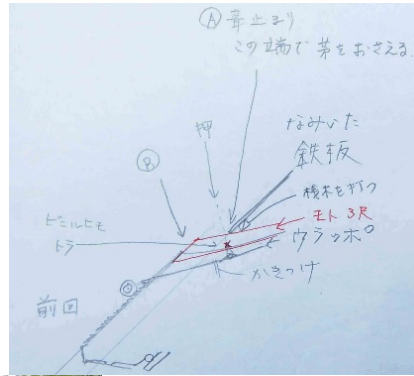 Ⓐ 茅止まり
この端で茅をおさえる
押
なみいた
鉄板
Ⓑ
横木を打つ
モト3尺
ビニルヒモ
トラ
ウラッポ
かきつけ
前回